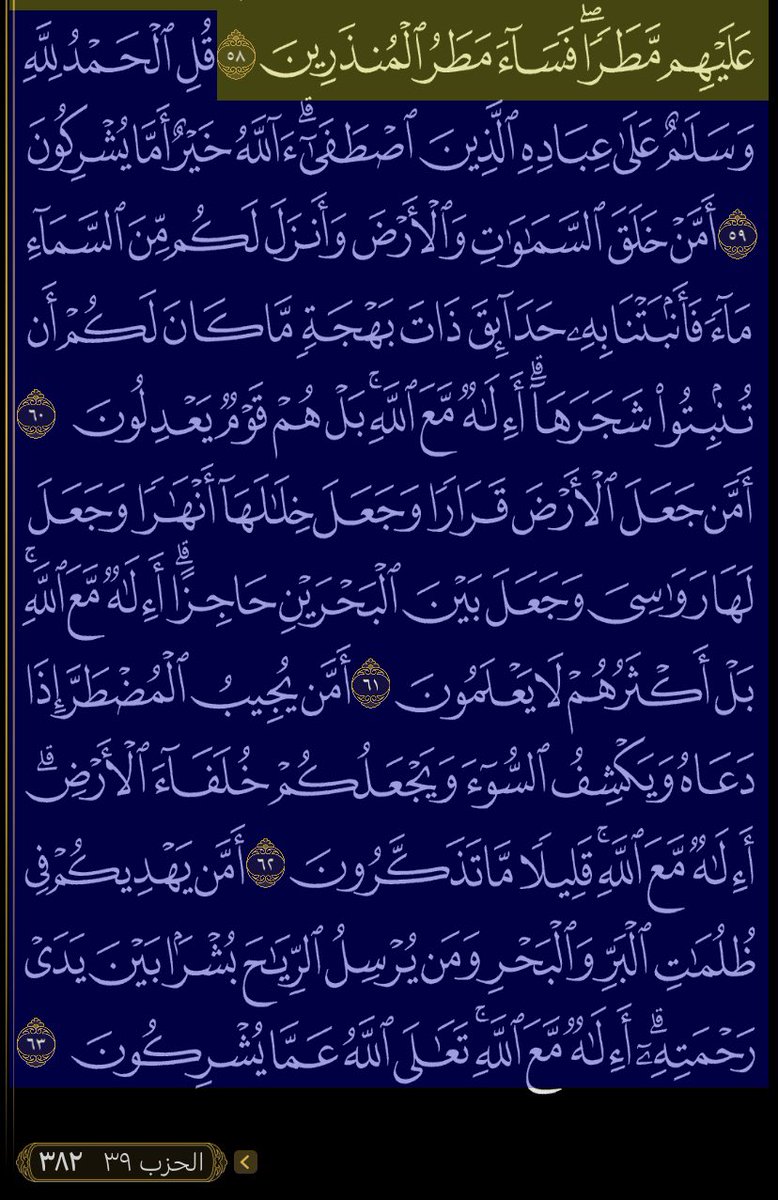 عَلَيْهِم مَّطَرًاۖ فَسَآءَ مَطَرُ ٱلْمُنذَرِينَ ٥٨ قُلِ ٱلْحَمْدُ لِلَّهِ
وَسَلَٰمٌ عَلَىٰ عِبَادِهِ ٱلَّذِينَ ٱصْطَفَىٰٓۗ ءَآللَّهُ خَيْرٌ أَمَّا يُشْرِكُونَ
٥٩ أَمَّنْ خَلَقَ ٱلسَّمَٰوَٰتِ وَٱلْأَرْضَ وَأَنزَلَ لَكُم مِّنَ ٱلسَّمَآءِ
مَآءً فَأَنۢبَتْنَا بِهِۦ حَدَآئِقَ ذَاتَ بَهْجَةٍ مَّا كَانَ لَكُمْ أَن
تُنۢبِتُوا۟ شَجَرَهَآۗ أَءِلَٰهٌ مَّعَ ٱللَّهِۚ بَلْ هُمْ قَوْمٌ يَعْدِلُونَ ٦٠
أَمَّن جَعَلَ ٱلْأَرْضَ قَرَارًا وَجَعَلَ خِلَٰلَهَآ أَنْهَٰرًا وَجَعَلَ
لَهَا رَوَٰسِىَ وَجَعَلَ بَيْنَ ٱلْبَحْرَيْنِ حَاجِزًاۗ أَءِلَٰهٌ مَّعَ ٱللَّهِۚ
بَلْ أَكْثَرُهُمْ لَا يَعْلَمُونَ ٦١ أَمَّن يُجِيبُ ٱلْمُضْطَرَّ إِذَا
دَعَاهُ وَيَكْشِفُ ٱلسُّوٓءَ وَيَجْعَلُكُمْ خُلَفَآءَ ٱلْأَرْضِۗ
أَءِلَٰهٌ مَّعَ ٱللَّهِۚ قَلِيلًا مَّا تَذَكَّرُونَ ٦٢ أَمَّن يَهْدِيكُمْ فِى
ظُلُمَٰتِ ٱلْبَرِّ وَٱلْبَحْرِ وَمَن يُرْسِلُ ٱلرِّيَٰحَ بُشْرًۢا بَيْنَ يَدَىْ
رَحْمَتِهِۦٓۗ أَءِلَٰهٌ مَّعَ ٱللَّهِۚ تَعَٰلَى ٱللَّهُ عَمَّا يُشْرِكُونَ ٦٣
الحزب ٣٩ ٣٨٢